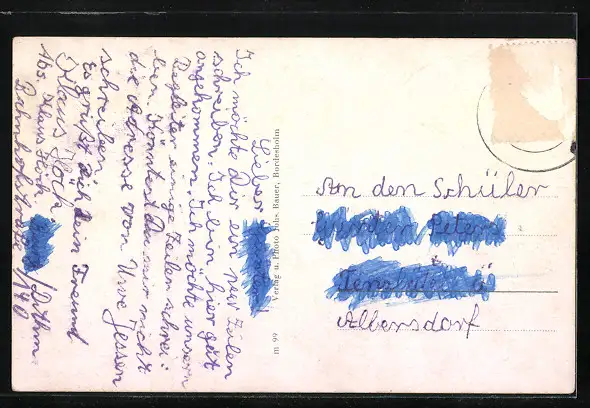 Lieber
Ich möchte Dir ein par Zeilen
schreiben. Ich bin hier gut
angekommen. Ich möchte unsern
Begleiter einige Zeilen schrei-
ben. Könntest Du mir nicht
die Adresse von Uwe Jessen
schreiben.
Es grüßt dich dein Freund
Klaus Höch
Abs. Klaus Höch
/Dithm
Bahnhofstraße 140
m 99 Verlag u. Photo Johs. Bauer, Bordesholm
An den Schüler
Peters
Albersdorf